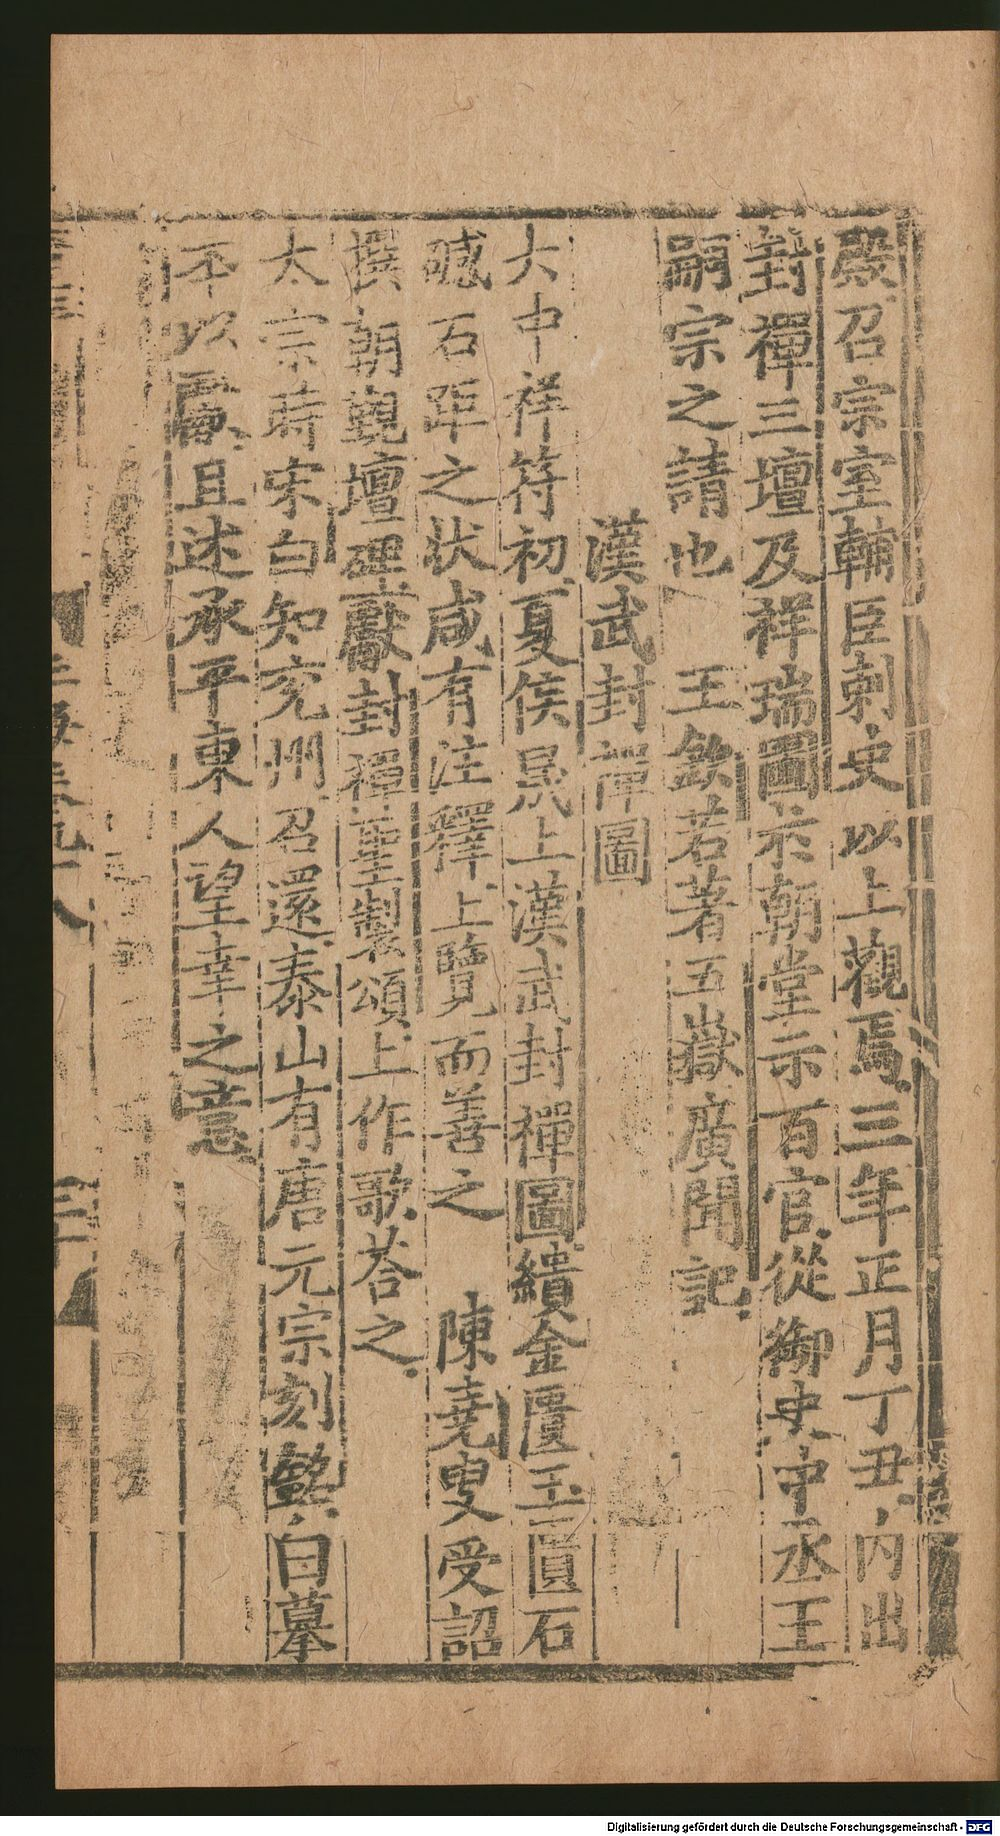 殿召宗室輔臣刺史以上觀焉三年正月丁丑內出
封禪三壇及祥瑞圖示朝堂示百官從御史中丞王
嗣宗之請也　王欽若著五嶽廣聞記
漢武封禪圖
大中祥符初夏侯晟上漢武封禪圖繢金匱玉匱石
䃭石距之狀咸有注釋上覽而善之　陳堯叟受詔
撰朝覲壇碑獻封禪聖製頌上作歌荅之
太宗時宋白知兗州召還泰山有唐元宗刻銘白摹
不以獻且述承平東人望幸之意
Digitalisierung gefördert durch die Deutsche Forschungsgemeinschaft - DFG